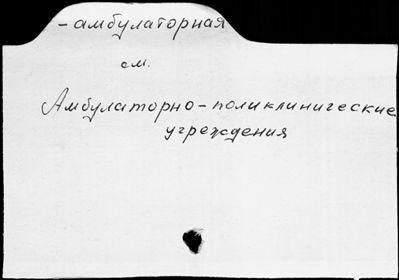 -амбулаторная
см.
Амбулаторно-поликлинические
учреждения